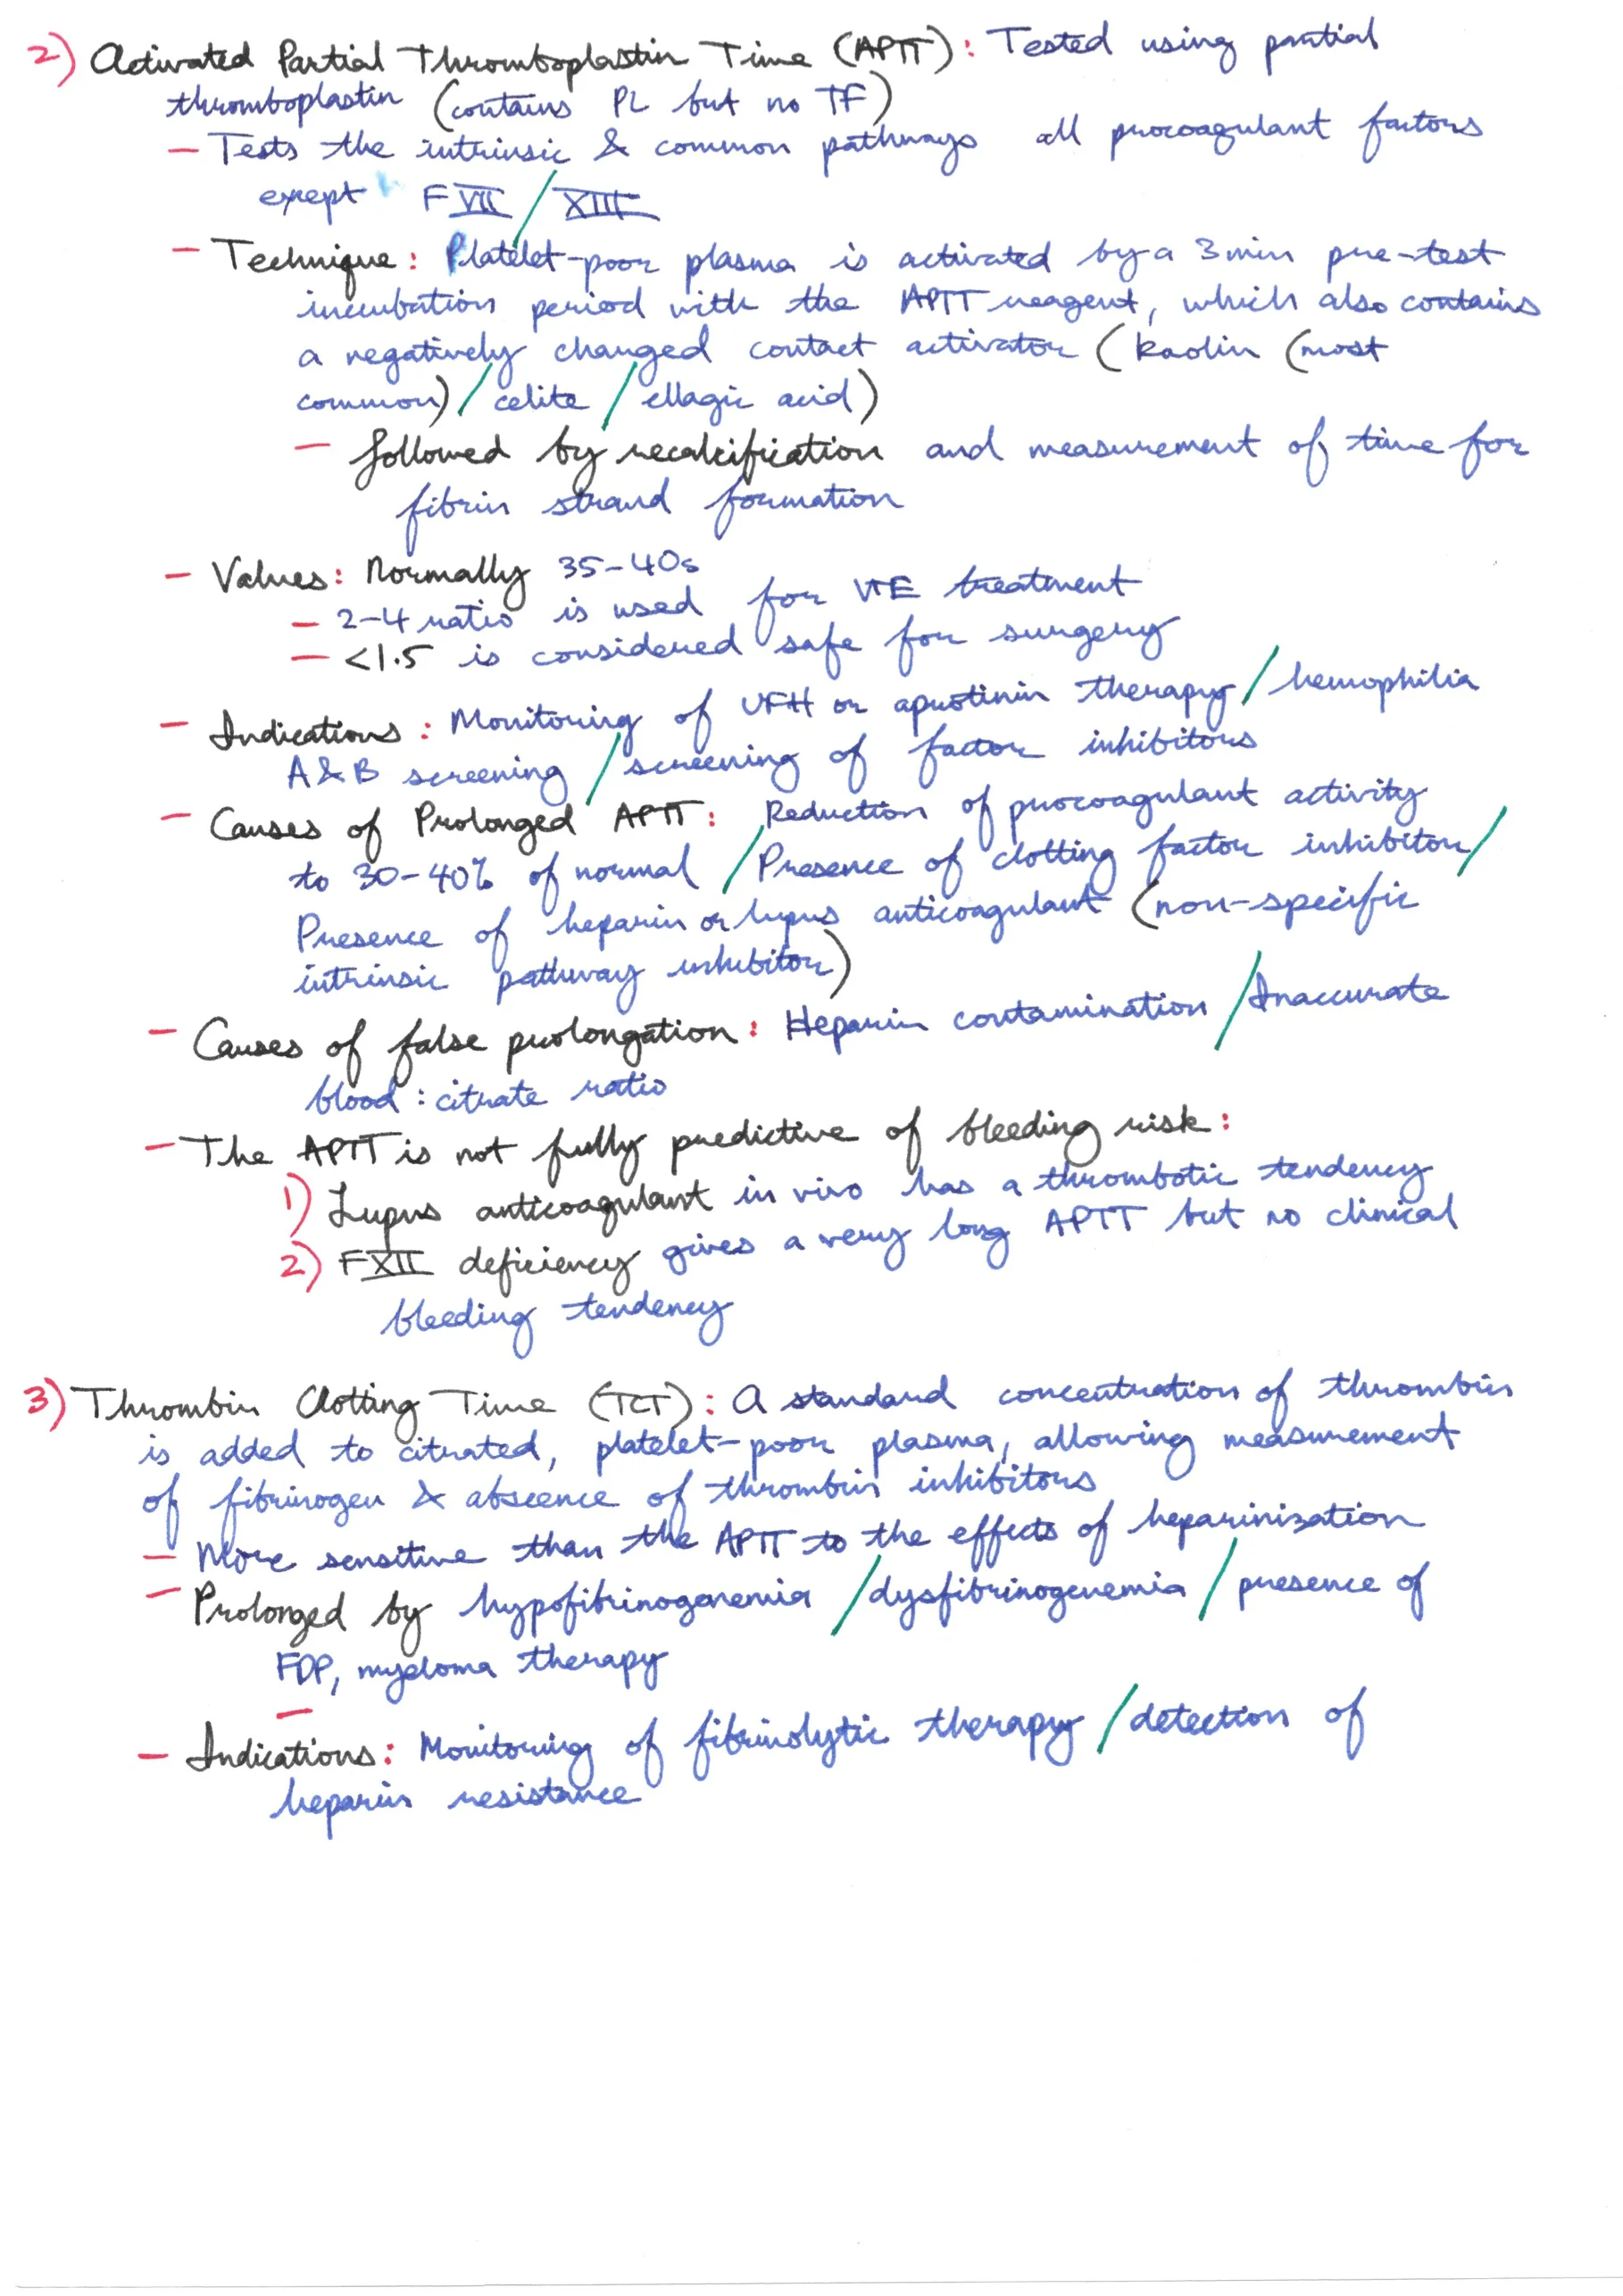 2) Activated Partial Thromboplastin Time (APTT): Tested using partial
thromboplastin (contains PL but no TF)
- Tests the intrinsic & common pathways all procoagulant factors
exept FVII / XIII
- Technique: Platelet-poor plasma is activated by a 3 min pre-test
incubation period with the APTT reagent, which also contains
a negatively charged contact activator (kaolin (most
common) / celite / ellagic acid)
- followed by recalcification and measurement of time for
fibrin strand formation
- Values: Normally 35-40s
- 2-4 ratio is used for VTE treatment
- <1.5 is considered safe for surgery
- Indications: Monitoring of UFH or aprotinin therapy / hemophilia
A & B screening / screening of factor inhibitors
- Causes of Prolonged APTT: Reduction of procoagulant activity
to 30-40% of normal / Presence of clotting factor inhibitor /
Presence of heparin or lupus anticoagulant (non-specific
intrinsic pathway inhibitor)
- Causes of false prolongation: Heparin contamination / Inaccurate
blood : citrate ratio
- The APTT is not fully predictive of bleeding risk:
1) Lupus anticoagulant in vivo has a thrombotic tendency
2) FXII deficiency gives a very long APTT but no clinical
bleeding tendency
3) Thrombin Clotting Time (TCT): A standard concentration of thrombin
is added to citrated, platelet-poor plasma, allowing measurement
of fibrinogen & abscence of thrombin inhibitors
- More sensitive than the APTT to the effects of heparinization
- Prolonged by hypofibrinogenemia / dysfibrinogenemia / presence of
FDP, myeloma therapy
-
- Indications: Monitoring of fibrinolytic therapy / detection of
heparin resistance